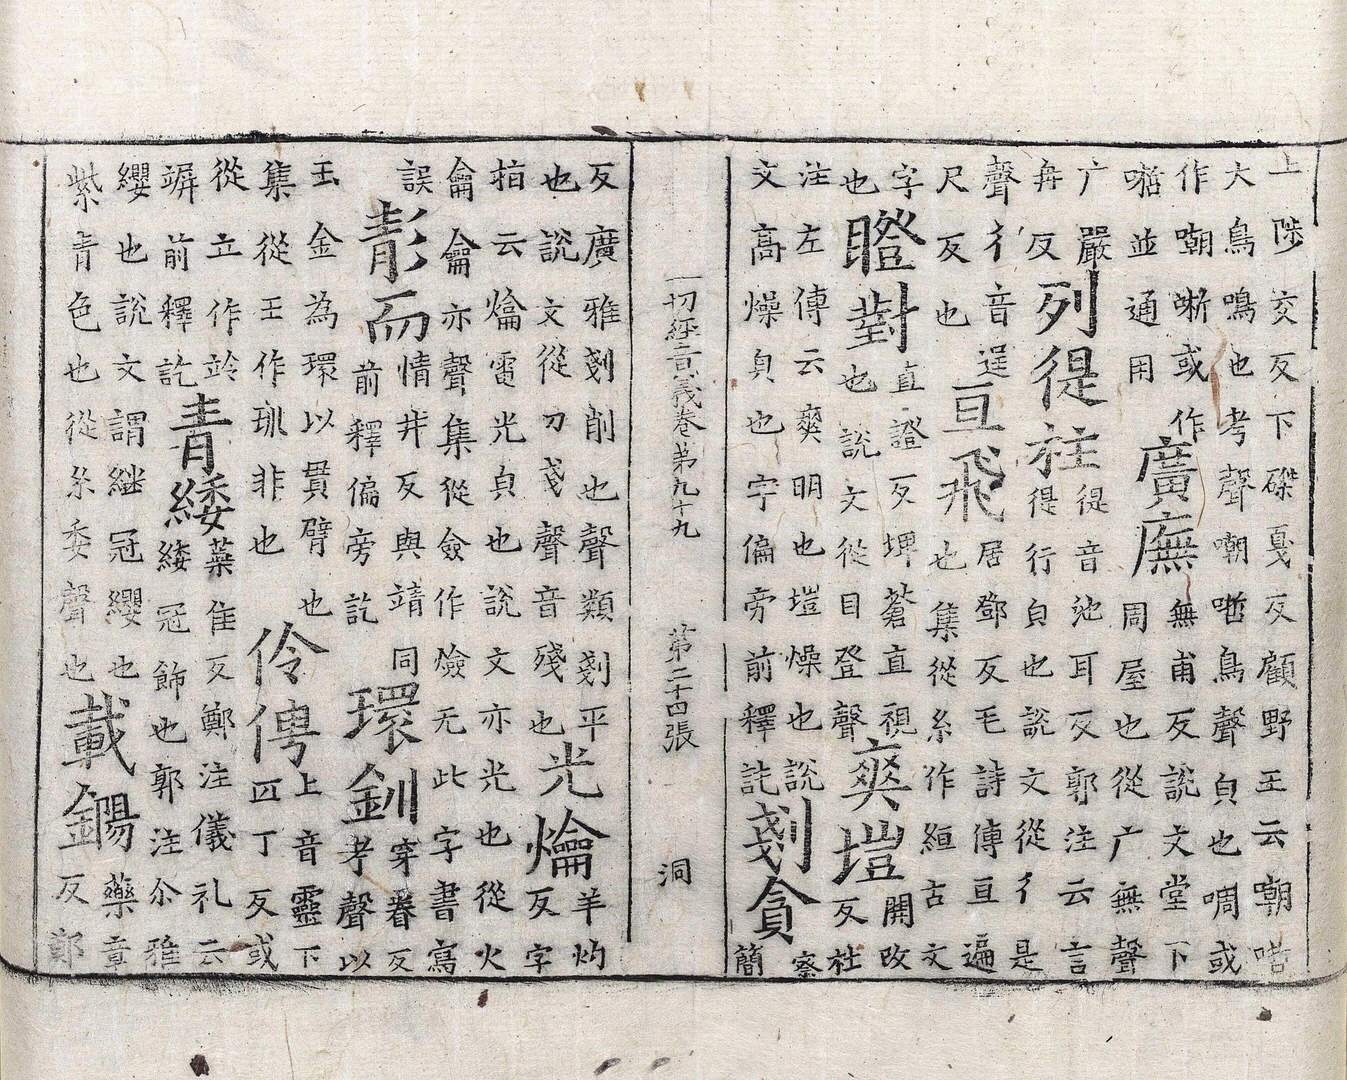 上陟交反下磔戛反顧野王云嘲哳
大鳥鳴也考聲嘲哳鳥聲皃也啁或
作嘲嘶或作
並通用
廣廡
無甫反說文堂下
周屋也從广無聲
广嚴
弁反
列徥社
徥音池耳反郭注云言
徥行皃也說文從彳是
聲彳音逞
尺反也
亘飛
居鄧反毛詩傳亘遍
也集從糸作絙古文
字
也
瞪對
直證反埤蒼直視
也說文從目登聲
爽塏
開改
反杜
注左傳云爽明也塏燥也說
文高燥皃也字偏旁前釋訖
剗貪
察
簡
一切經音義卷第九十九 第二十四張 洞
反廣雅剗削也聲類剗平
也說文從刀戔聲音殘也
光爚
羊灼
反字
拍云爚電光皃也說文亦光也從火
龠龠亦聲集從僉作爓无此字書寫
誤
而
情井反與靖同
前釋偏旁訖
環釧
穿眷反
考聲以
玉金為環以貫臂也
集從王作玔非也
伶俜
上音靈下
匹丁反或
從立作竛
竮前釋訖
青緌
蘂隹反鄭注儀礼云
緌冠飾也郭注尒雅
纓也說文謂繼冠纓也
紫青色也從糸委聲也
載鐊
藥章
反鄭